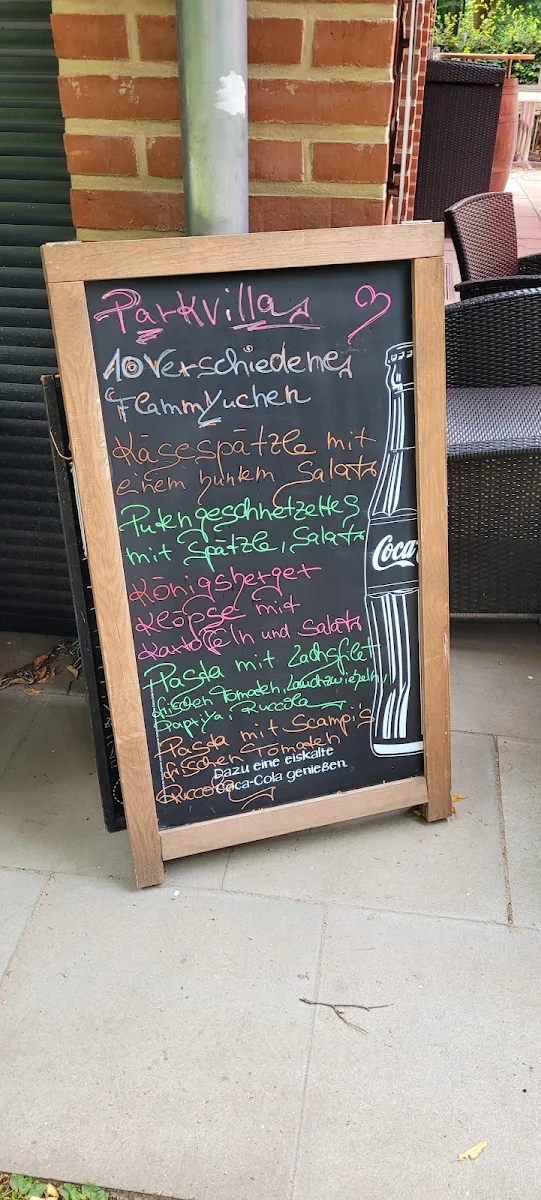 Parkvilla
10 Verschiedene
Flammkuchen
Käsespätzle mit
einem buntem Salat
Putengeschnetzeltes
mit Spätzle, Salat
Königsberger
Klöpse mit
Kartoffeln und Salat
Pasta mit Lachsfilet
frischen Tomaten, Lauchzwiebeln,
Paprika, Ruccola
Pasta mit Scampi's
frischen Tomaten
Ruccola
Dazu eine eiskalte
Coca-Cola genießen.
Coca